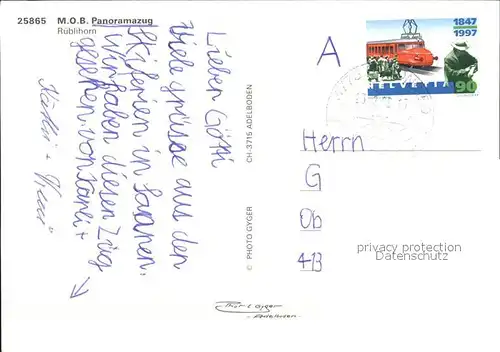 25865 M.O.B. Panoramazug
Rüblihorn
Lieber Götti
Viele grüsse aus den
Skiferien in Saanen.
Wir haben diesen Zug
gesehen. von
CH-3715 ADELBODEN
© PHOTO GYGER
Gyger
Adelboden
1847
1997
HELVETIA 90
A
Herrn
G
Ob
413
privacy protection
Datenschutz